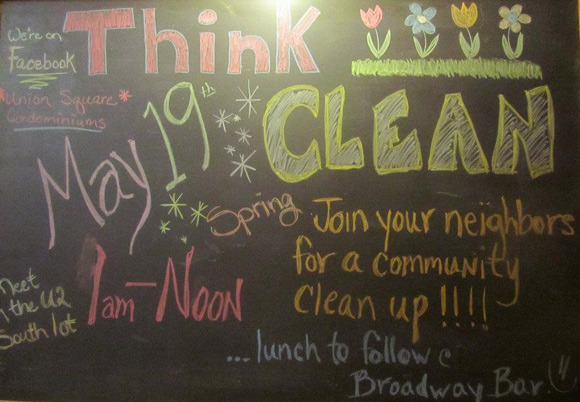 We're on
Facebook
*Union Square*
Condominiums
Think
CLEAN
May 19th
Spring
Join your neighbors
for a community
clean up!!!!
1am-NOON
meet
in the U2
South lot
...lunch to follow @
Broadway Bar!